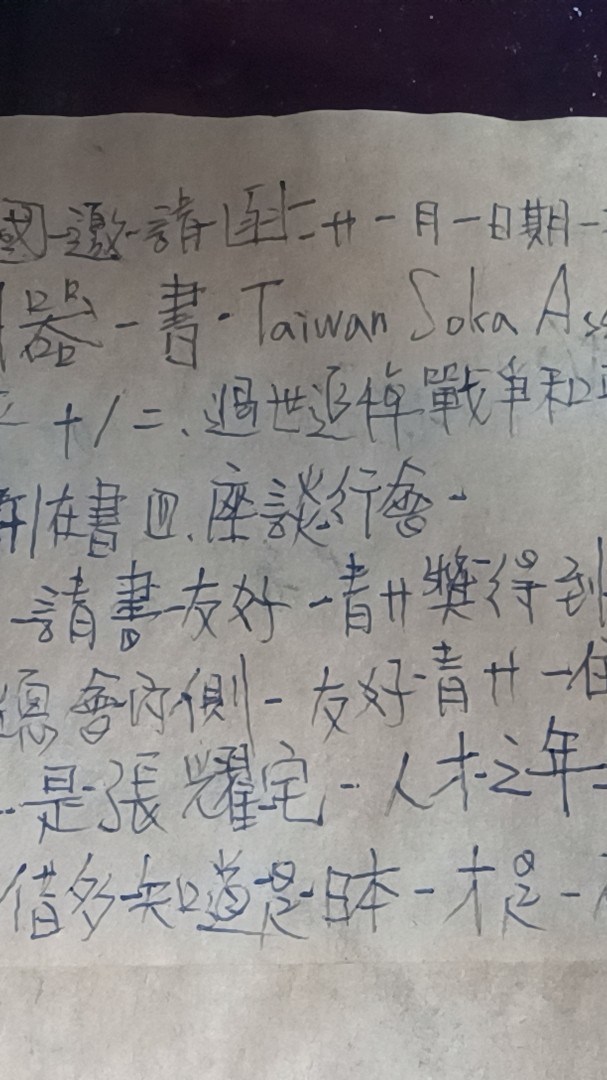 國-邀-請函二廿一月一日期-
器-書·Taiwan Soka Ass
十/二、過世追悼戰争和
在書皿、座談行會-
請書-友好-青廿獎得到
總會內側-友好青廿一佳
是張耀宅-人才之年-
借多知道是日本-才是-